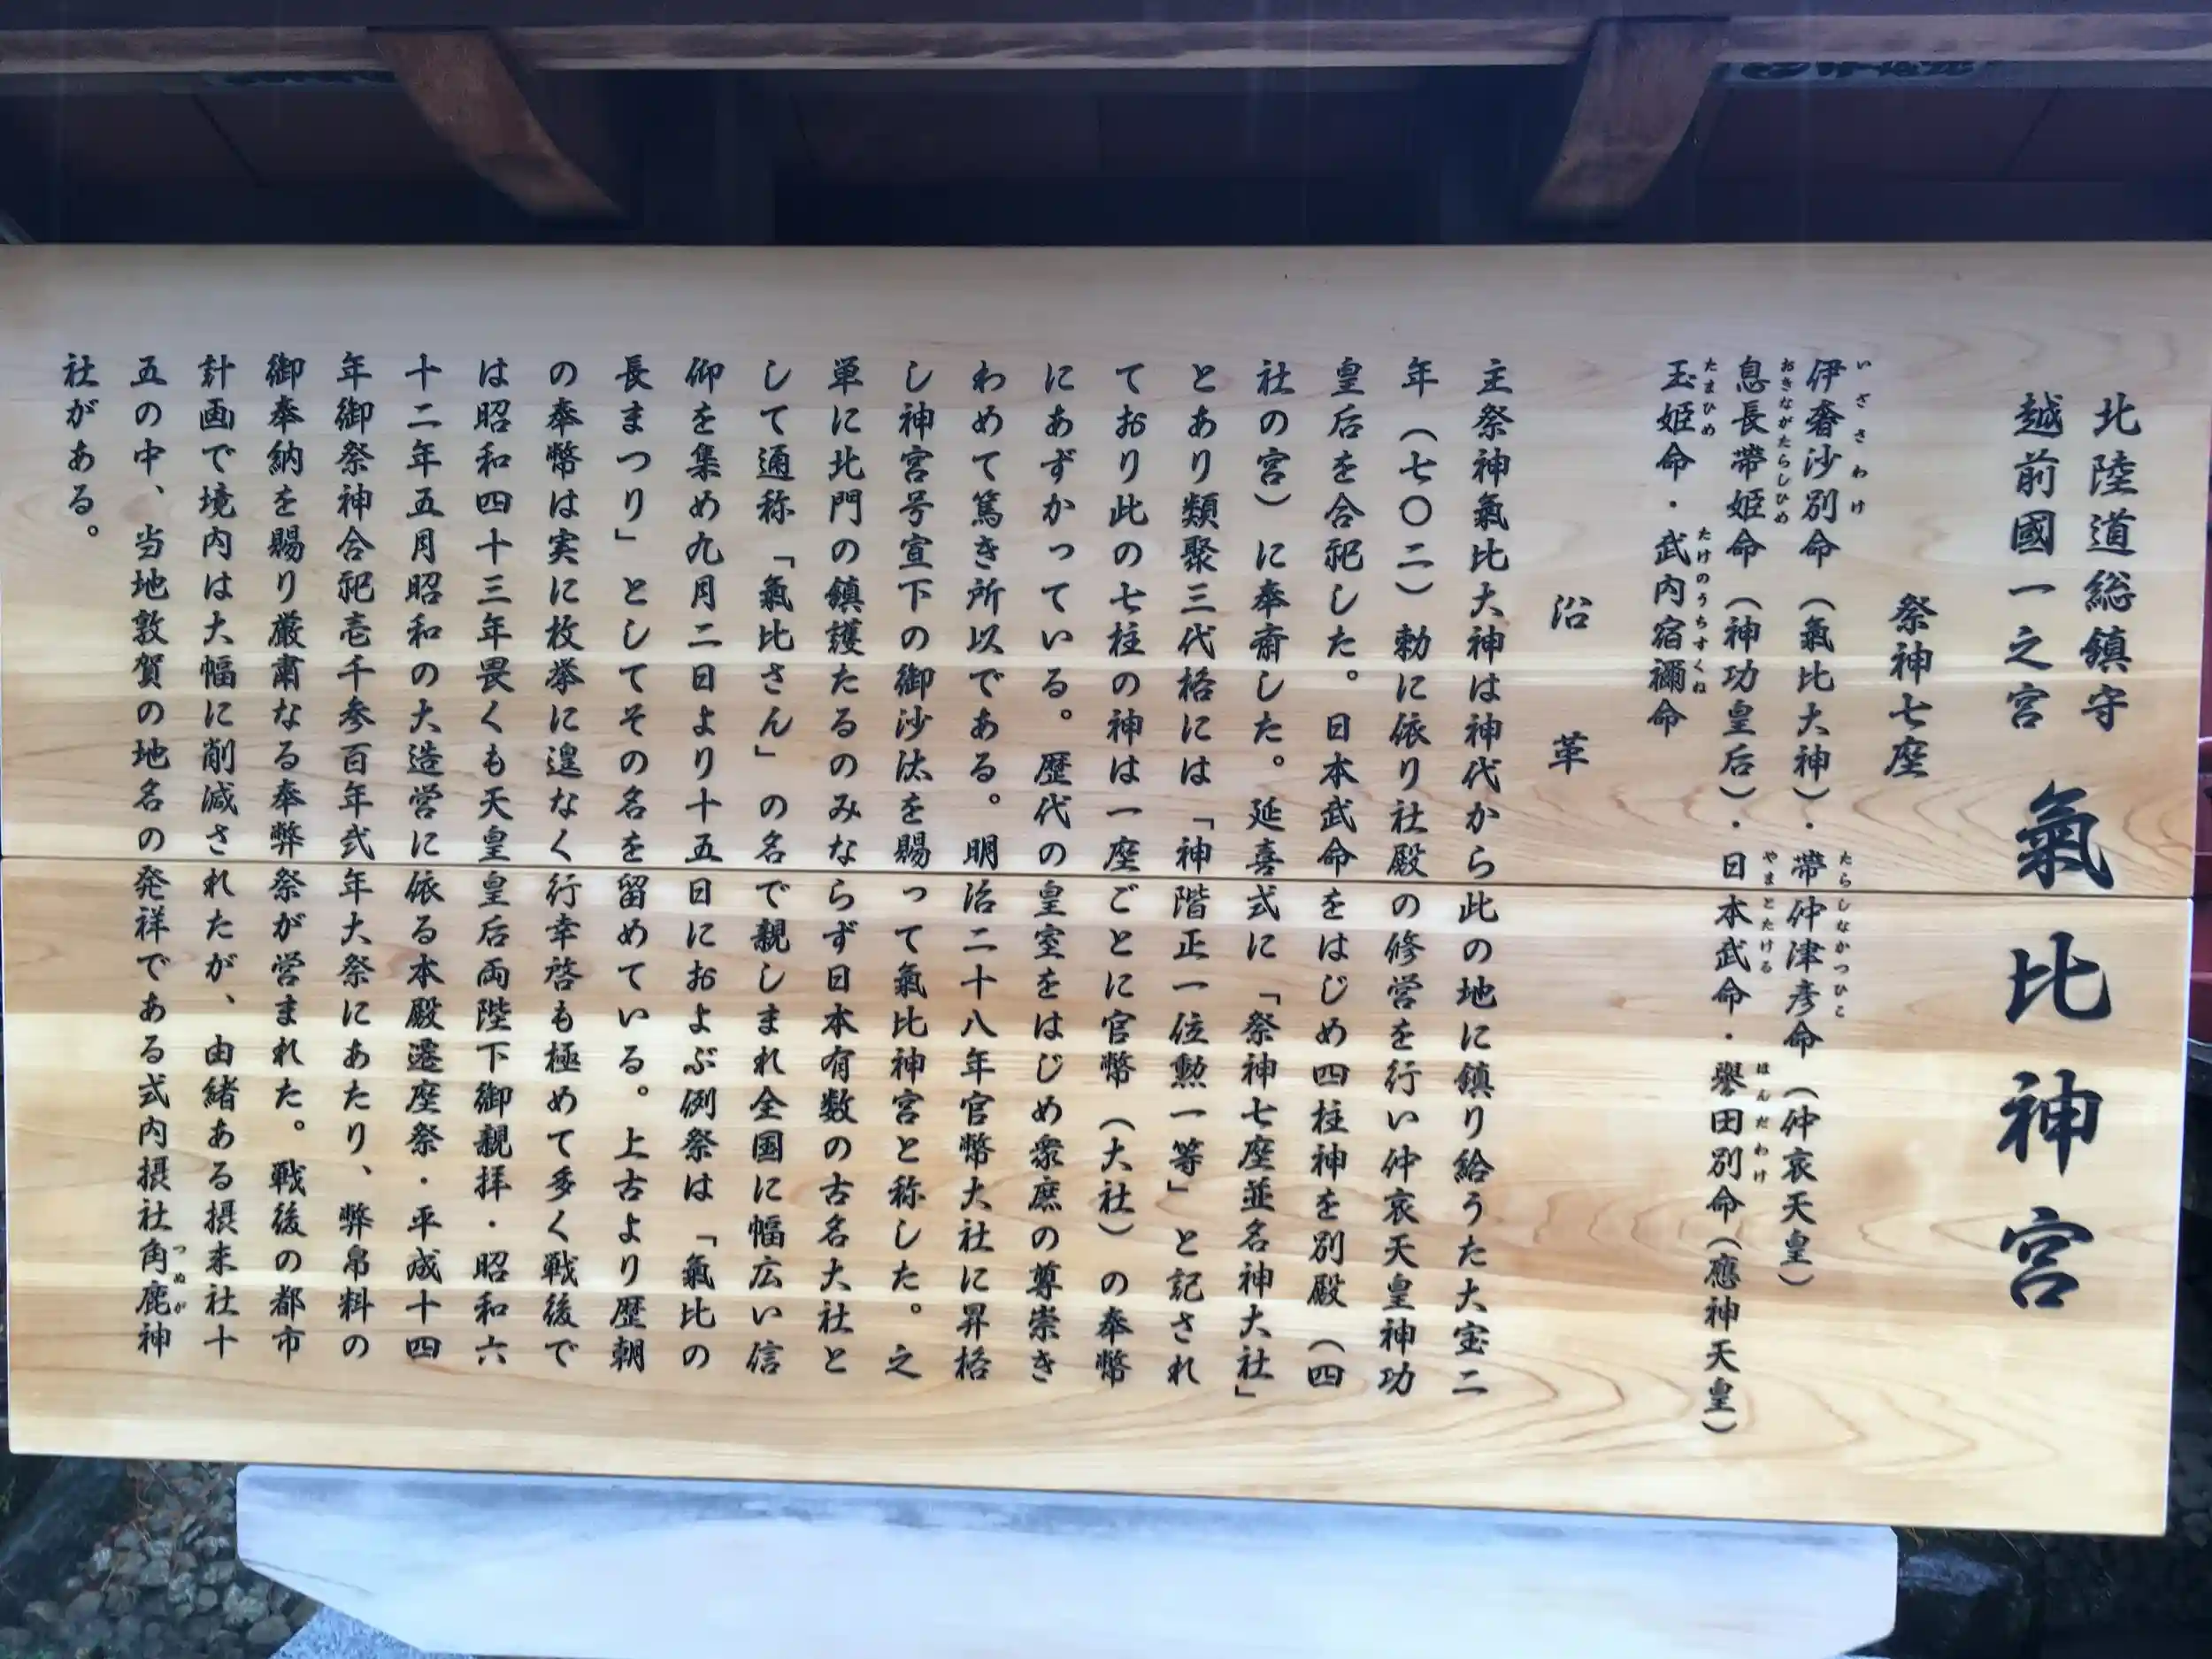 北陸道総鎮守
越前國一之宮
氣比神宮
祭神七座
いささわけ
たらしなかつひこ
伊奢沙別命（氣比大神）・帶仲津彦命（仲哀天皇）
おきながたらしひめ
やまとたける
ほんだわけ
息長帶姫命（神功皇后）・日本武命・譽田別命（應神天皇）
たまひめ
たけのうちすくね
玉姫命・武内宿禰命
沿革
主祭神氣比大神は神代から此の地に鎮り給うた大宝二
年（七〇二）勅に依り社殿の修営を行い仲哀天皇神功
皇后を合祀した。日本武命をはじめ四柱神を別殿（四
社の宮）に奉斎した。延喜式に「祭神七座並名神大社」
とあり類聚三代格には「神階正一位勲一等」と記され
ており此の七柱の神は一座ごとに官幣（大社）の奉幣
にあずかっている。歴代の皇室をはじめ衆庶の尊崇き
わめて篤き所以である。明治二十八年官幣大社に昇格
し神宮号宣下の御沙汰を賜って氣比神宮と称した。之
単に北門の鎮護たるのみならず日本有数の古名大社と
して通称「氣比さん」の名で親しまれ全国に幅広い信
仰を集め九月二日より十五日におよぶ例祭は「氣比の
長まつり」としてその名を留めている。上古より歴朝
の奉幣は実に枚挙に遑なく行幸啓も極めて多く戦後で
は昭和四十三年畏くも天皇皇后両陛下御親拝・昭和六
十二年五月昭和の大造営に依る本殿遷座祭・平成十四
年御祭神合祀壱千参百年弐年大祭にあたり、弊帛料の
御奉納を賜り厳粛なる奉弊祭が営まれた。戦後の都市
計画で境内は大幅に削減されたが、由緒ある摂末社十
五の中、当地敦賀の地名の発祥である式内摂社角鹿神
つぬが
社がある。